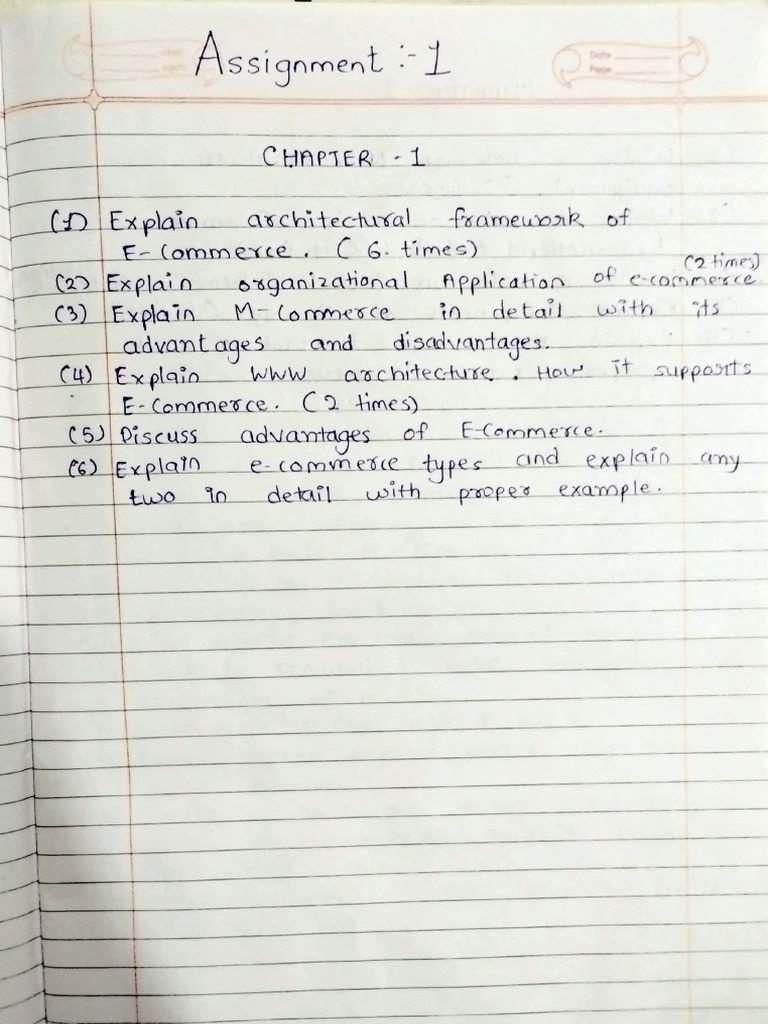 Assignment :- 1
Date
Page
CHAPTER - 1
(1) Explain architectural framework of
E-Commerce. (6. times)
(2 times)
(2) Explain organizational Application of e-commerce
(3) Explain M-Commerce in detail with its
advantages and disadvantages.
(4) Explain WWW architecture. How it supports
E-Commerce. (2 times)
(5) Discuss advantages of E-Commerce.
(6) Explain e-commerce types and explain any
two in detail with proper example.